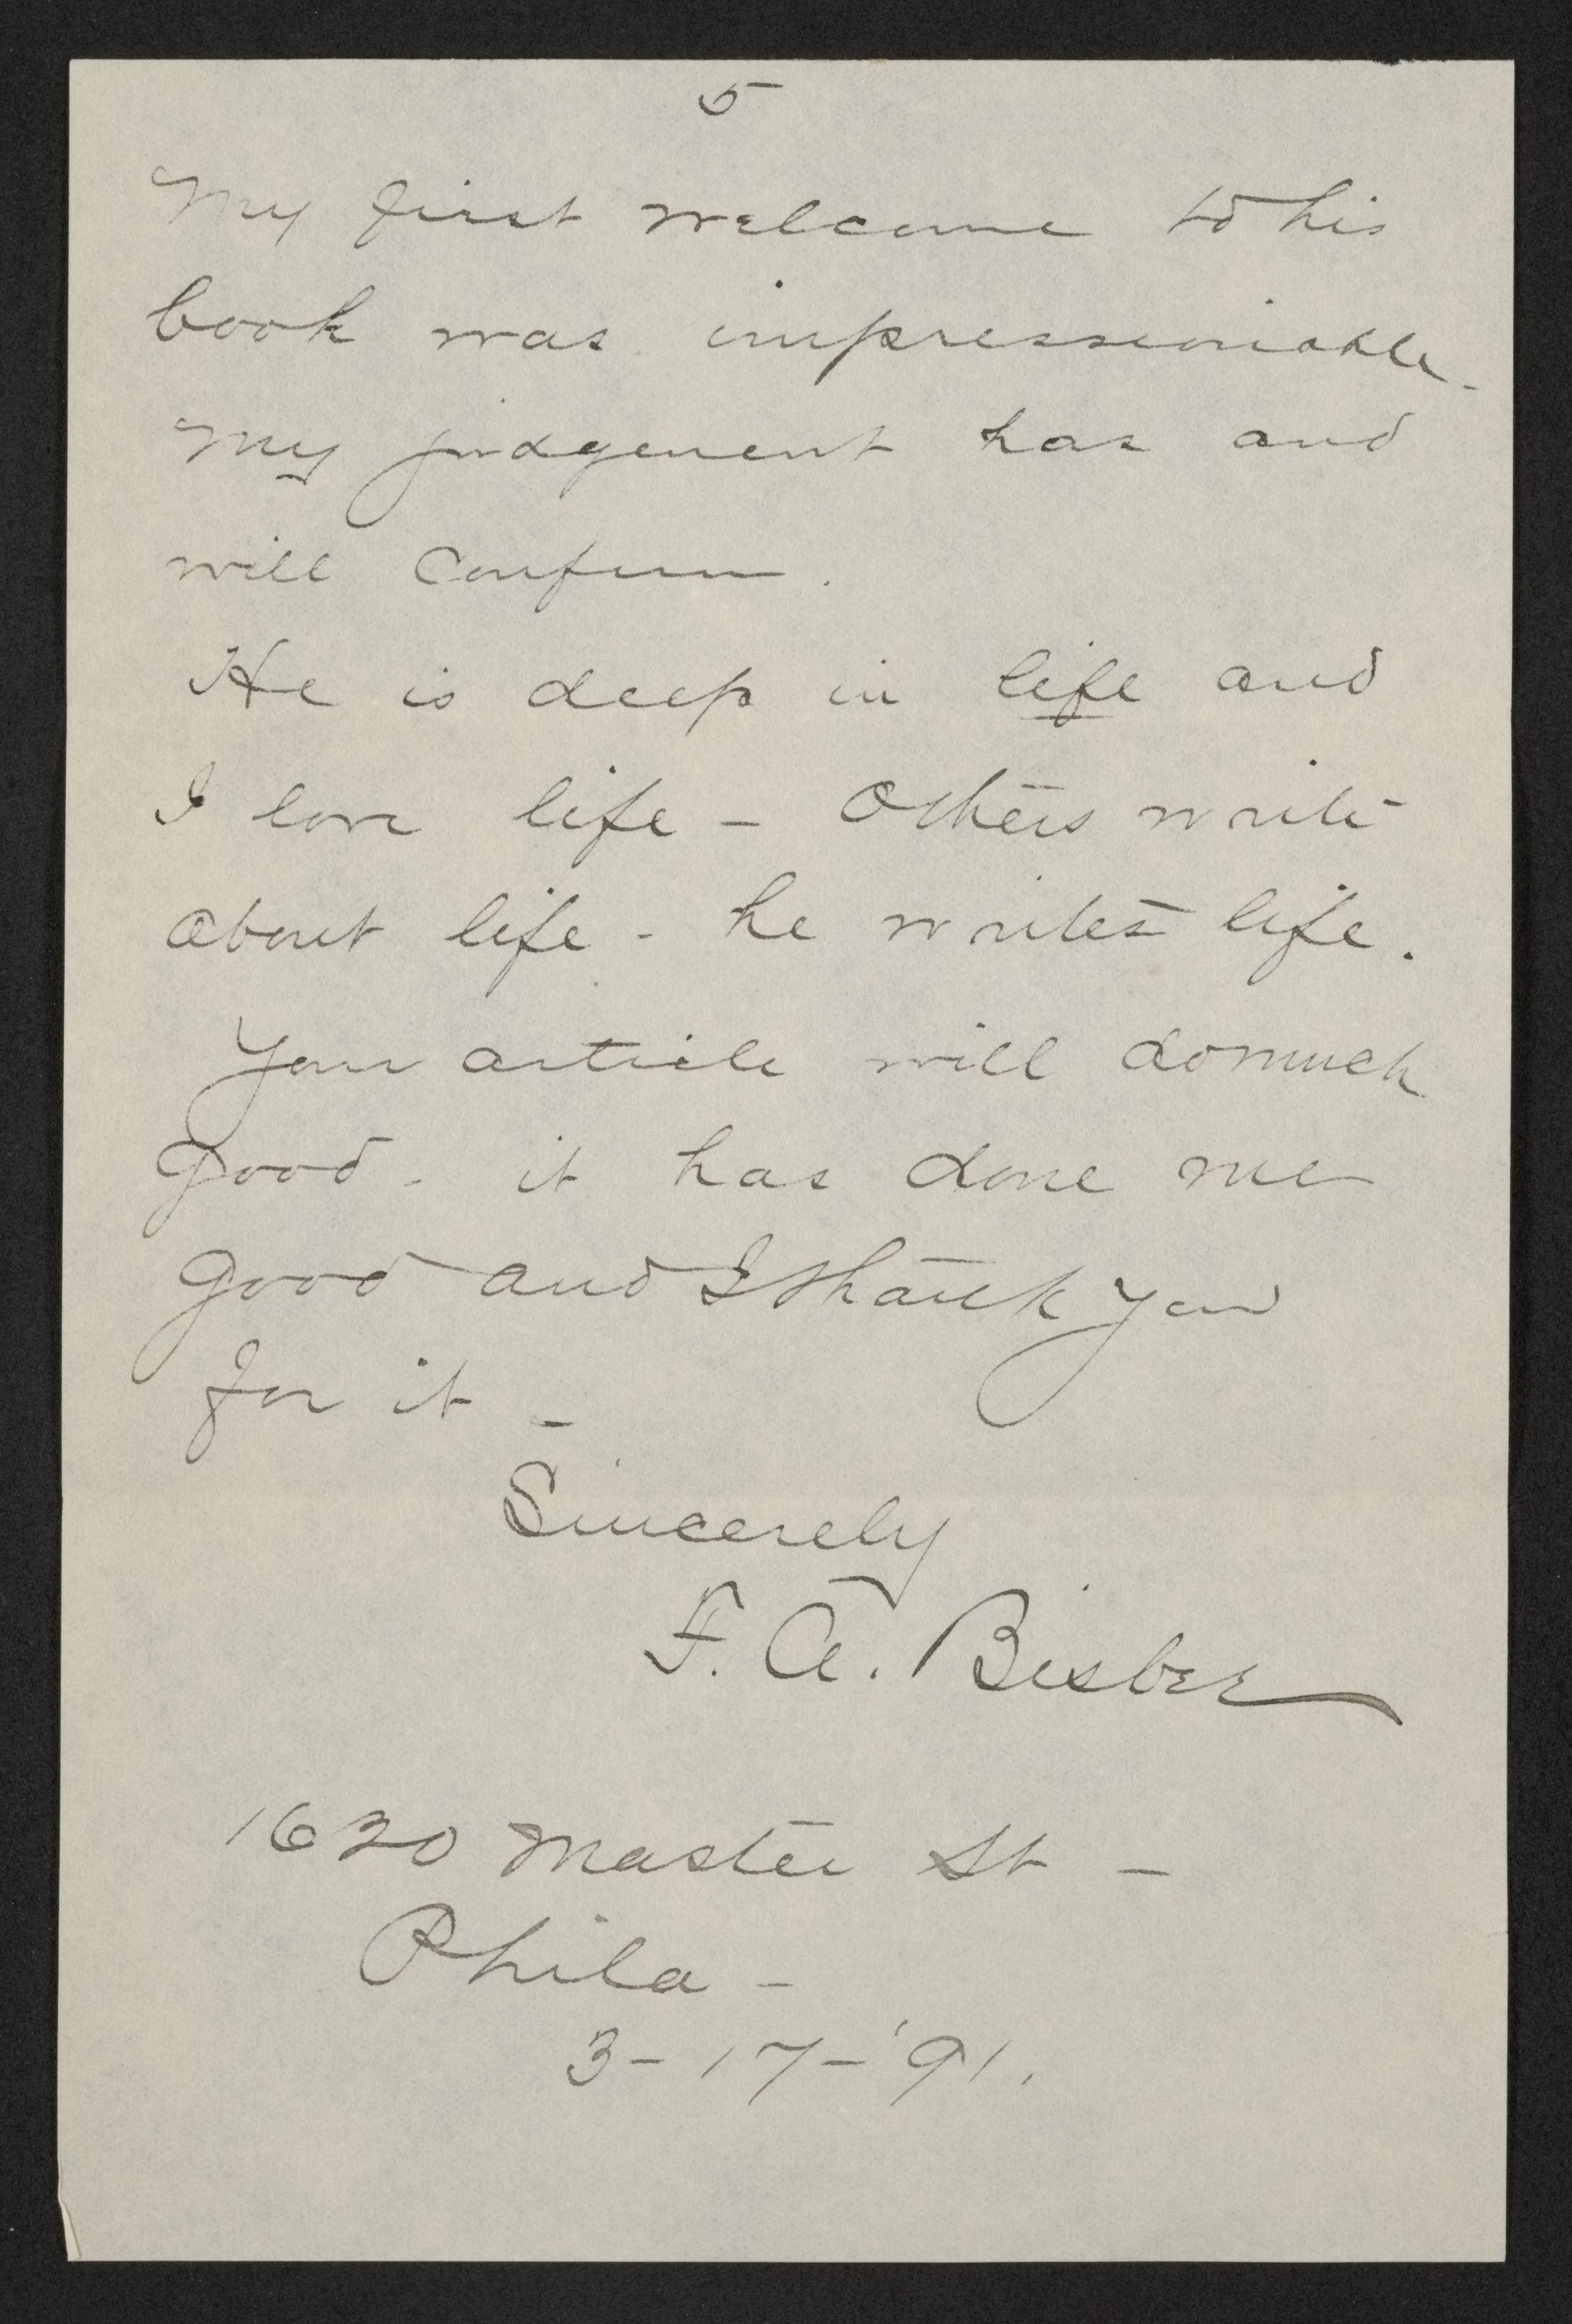 5
My first welcome to his
book was impressionable.
My judgement has and
will confirm.
He is deep in life and
I love life – Others write
about life - he writes life.
Your article will do much
good - it has done me
good and I thank you
for it –
Sincerely
F. A. Bisbee
1620 Master St –
Phila –
3-17-'91.